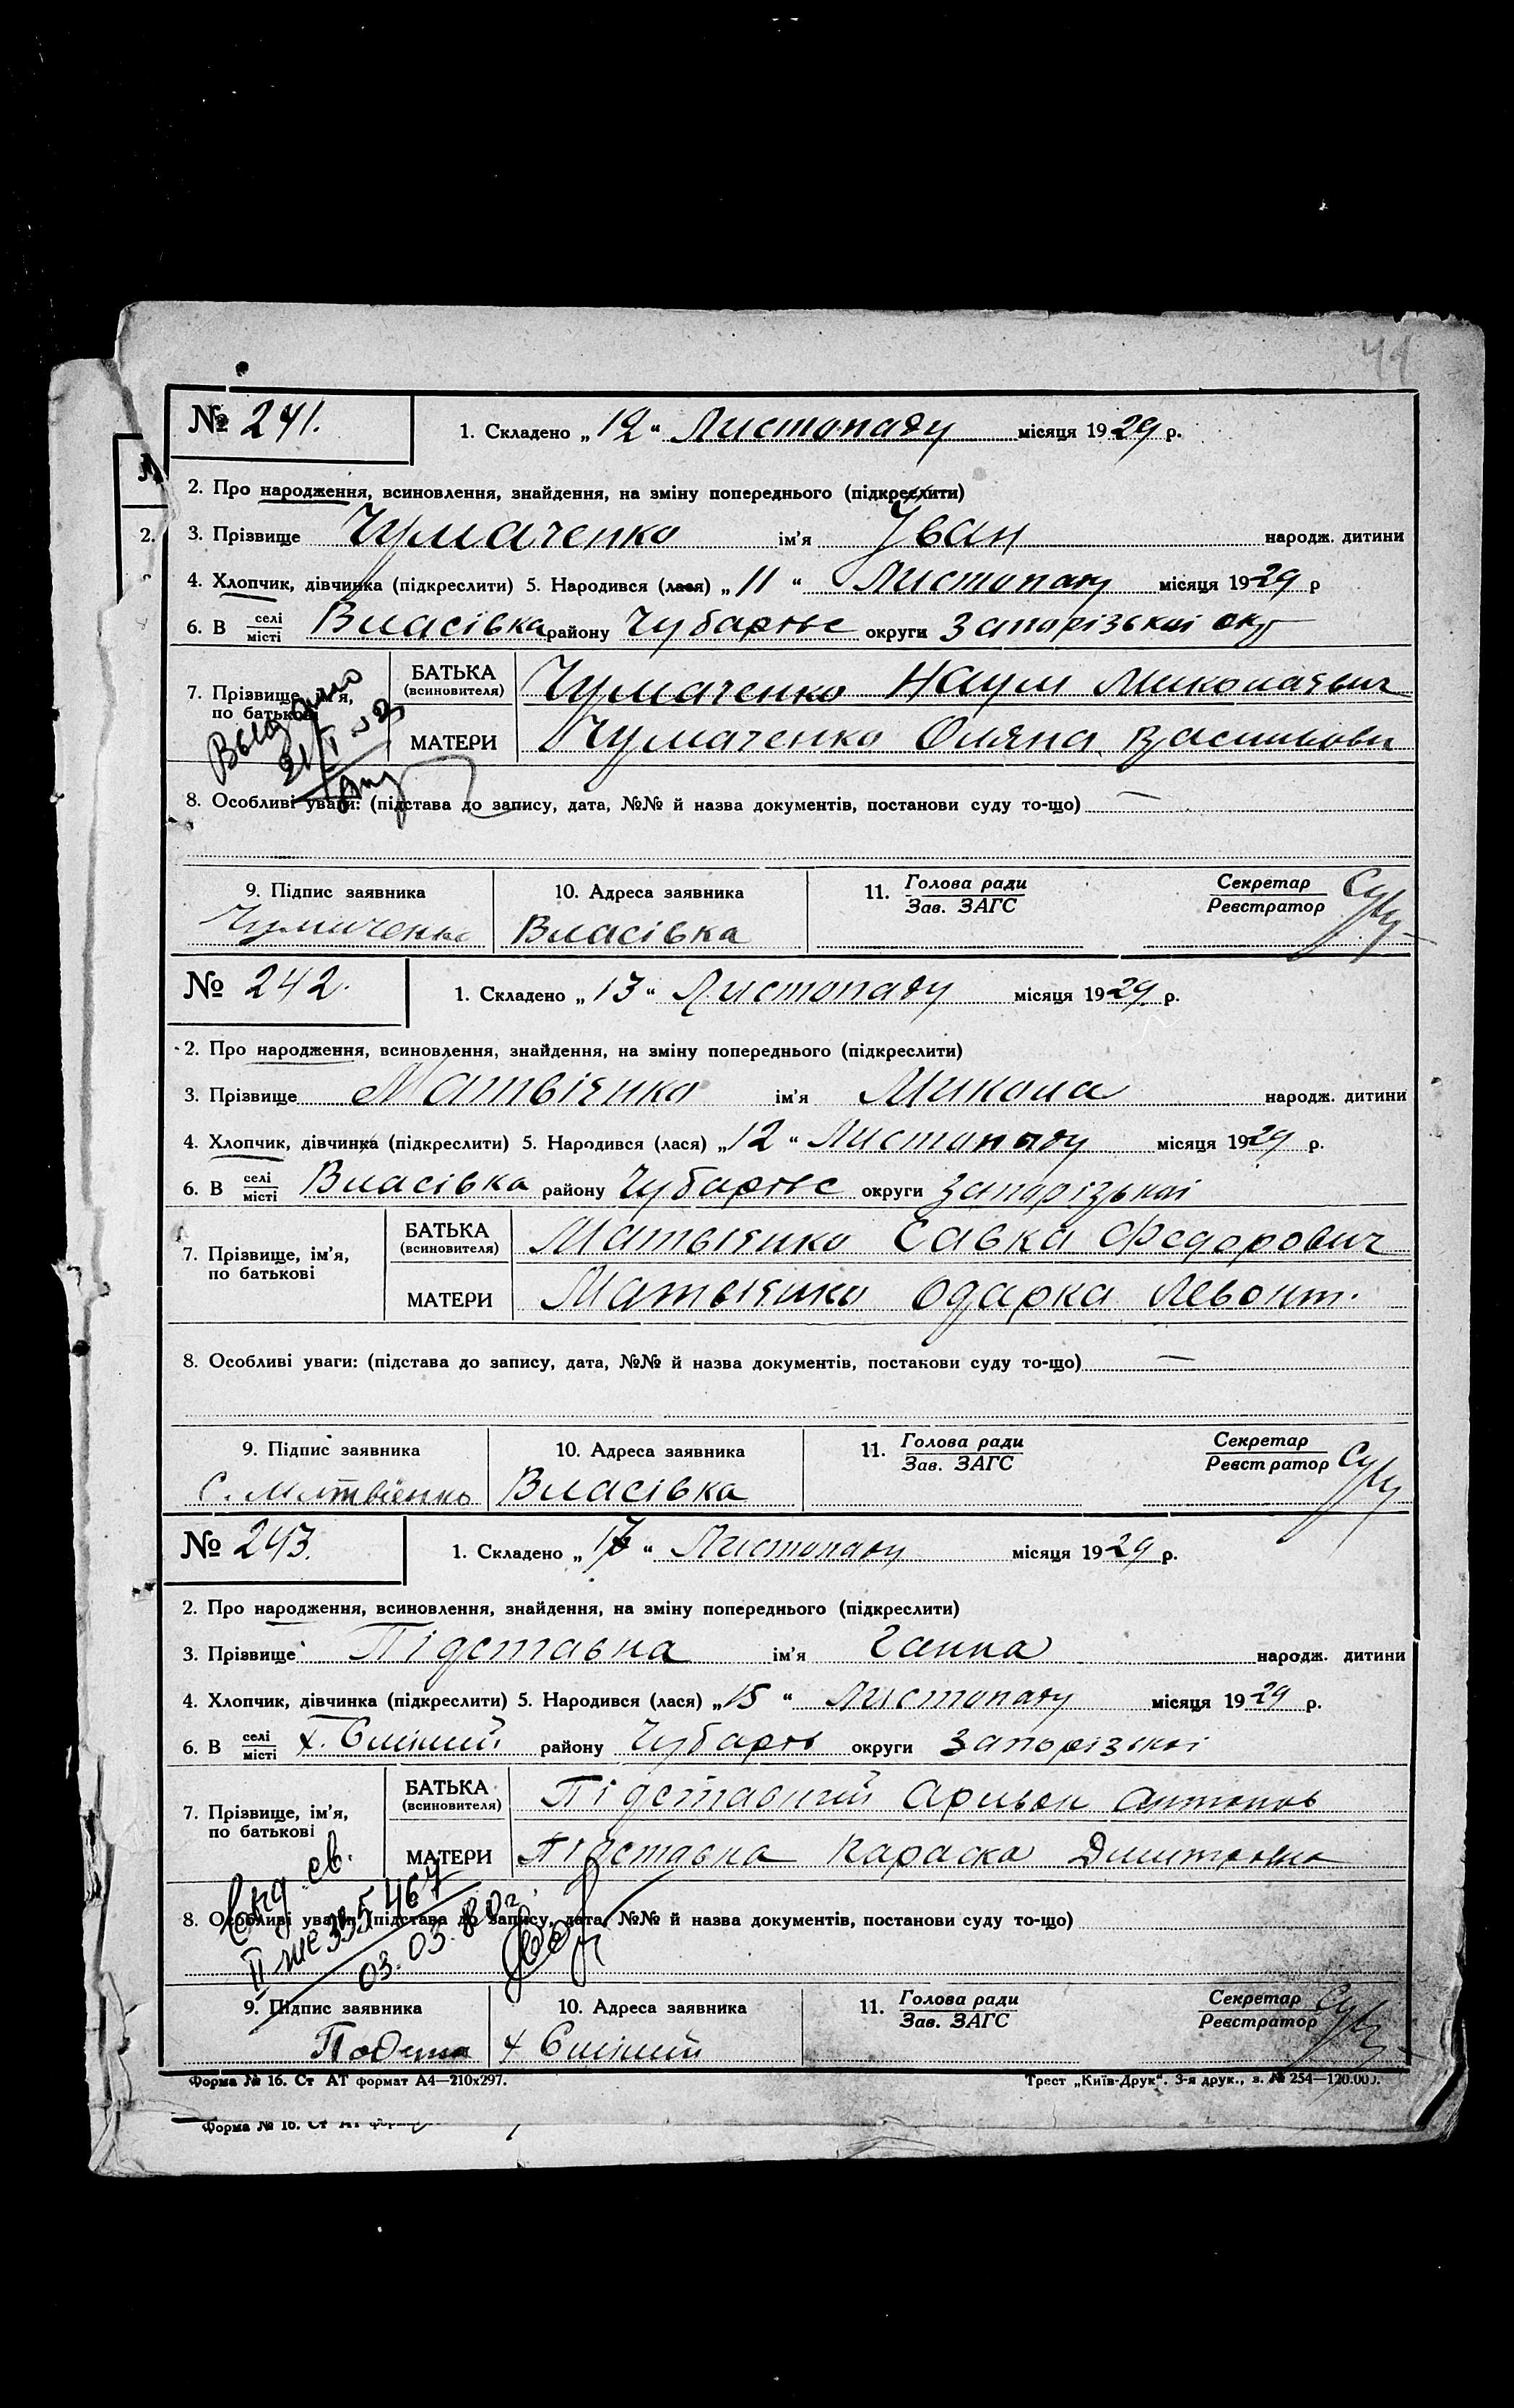 41
№ 241.
1. Складено „ 12 “ Листопаду місяця 1929 р.
2. Про народження, всиновлення, знайдення, на зміну попереднього (підкреслити)
3. Прізвище Чумаченко ім'я Іван народж. дитини
4. Хлопчик, дівчинка (підкреслити) 5. Народився (лася) „ 11 “ Листопаду місяця 1929 р
6. В селі/місті Власівка району Чубарівс округи Запорізької окр
7. Прізвище, ім'я, по батькові
БАТЬКА (всиновителя) Чумаченко Наум Миколаевич
МАТЕРИ Чумаченко Оляна Василівн
Выдано
8. Особливі уваги: (підстава до запису, дата, №№ й назва документів, постанови суду то-що) —
9. Підпис заявника 10. Адреса заявника 11. Голова ради/Зав. ЗАГС Секретар/Реєстратор
Чумаченко Власівка
№ 242.
1. Складено „ 13 “ Листопаду місяця 1929 р.
2. Про народження, всиновлення, знайдення, на зміну попереднього (підкреслити)
3. Прізвище Матвієнко ім'я Микола народж. дитини
4. Хлопчик, дівчинка (підкреслити) 5. Народився (лася) „ 12 “ Листопаду місяця 1929 р.
6. В селі/місті Власівка району Чубарівс округи Запорізької
7. Прізвище, ім'я, по батькові
БАТЬКА (всиновителя) Матвієнко Савка Федорович
МАТЕРИ Матвієнко Одарка Левонт.
8. Особливі уваги: (підстава до запису, дата, №№ й назва документів, постанови суду то-що) —
9. Підпис заявника 10. Адреса заявника 11. Голова ради/Зав. ЗАГС Секретар/Реєстратор
С. Матвієнко Власівка
№ 243.
1. Складено „ 17 “ Листопаду місяця 1929 р.
2. Про народження, всиновлення, знайдення, на зміну попереднього (підкреслити)
3. Прізвище Підставна ім'я Ганна народж. дитини
4. Хлопчик, дівчинка (підкреслити) 5. Народився (лася) „ 15 “ Листопаду місяця 1929 р.
6. В селі/місті х. району Чубарів округи Запорізької
7. Прізвище, ім'я, по батькові
БАТЬКА (всиновителя) Підставний Антонов
МАТЕРИ Підставна Параска Дмитровна
св.
335467
03.03.80г.
8. Особливі уваги: (підстава до запису, дата, №№ й назва документів, постанови суду то-що)
9. Підпис заявника 10. Адреса заявника 11. Голова ради/Зав. ЗАГС Секретар/Реєстратор
х
Форма № 16. Ст АТ формат А4—210х297. Трест „Київ-Друк“. 3-я друк., з. № 254—120.000.
Форма № 16. Ст АТ